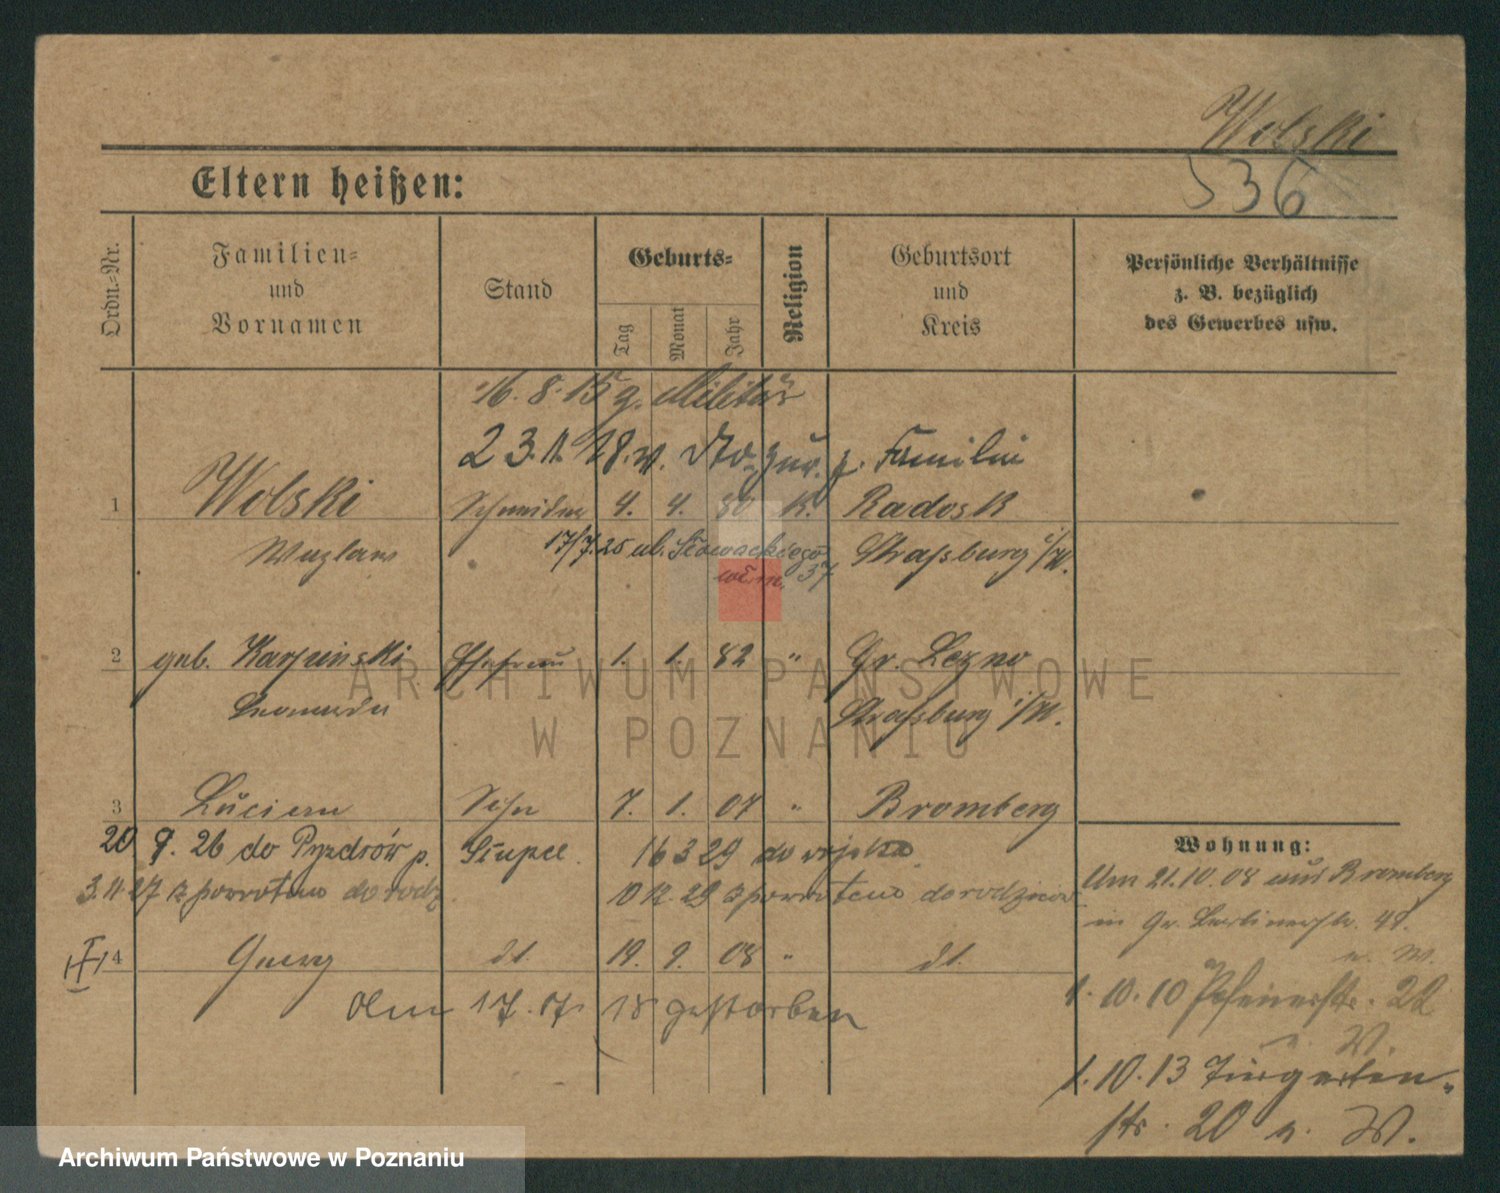 Wolski
536
Eltern heißen:
Ordn.-Nr.
Familien- und Vornamen
Stand
Geburts-
Tag
Monat
Jahr
Religion
Geburtsort und Kreis
Persönliche Verhältnisse
z. B. bezüglich
des Gewerbes usw.
16. 8. 15 z. Militär
23. 11. 18. v. z. Familie
1 Wolski Schneider 4. 4. 80 K. Radosk
17/7. 25 ul. Słowackiego
37
Strassburg i/W.
2 geb. Karpinski Ehefrau 1. 1. 82 " Gr. Lezno
Leonarda Strassburg i/W.
3 Lucian Sohn 7. 1. 07 " Bromberg
20 9. 26 do Pyzdrów p. Słupce. 16 3 29 do wojska
3. 11. 27 z powrotem do rodz. z powrotem do rodziców
4 Georg dt. 19. 9. 08 " dt.
Am 17. 07. 18 gestorben
Wohnung:
Am 21. 10. 08 aus Bromberg
in Gr. Berlinerstr. 41.
n. W.
1. 10. 10 22
n. W.
1. 10. 13 Tiergarten-
str. 20 n. W.
ARCHIWUM PAŃSTWOWE
W POZNANIU
Archiwum Państwowe w Poznaniu